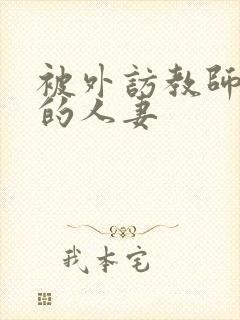 被外訪教師
的人妻
我本宅